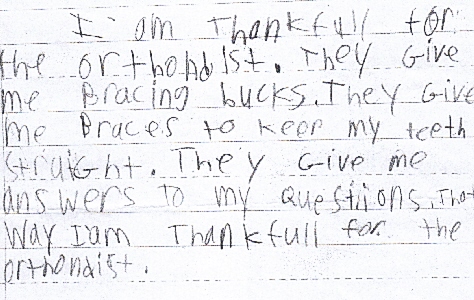 I am Thankfull for
the orthondist. They Give
me Bracing bucks. They Give
me Braces to keep my teeth
straight. They Give me
answers to my Questions. That
Way I am Thankfull for the
orthondist.